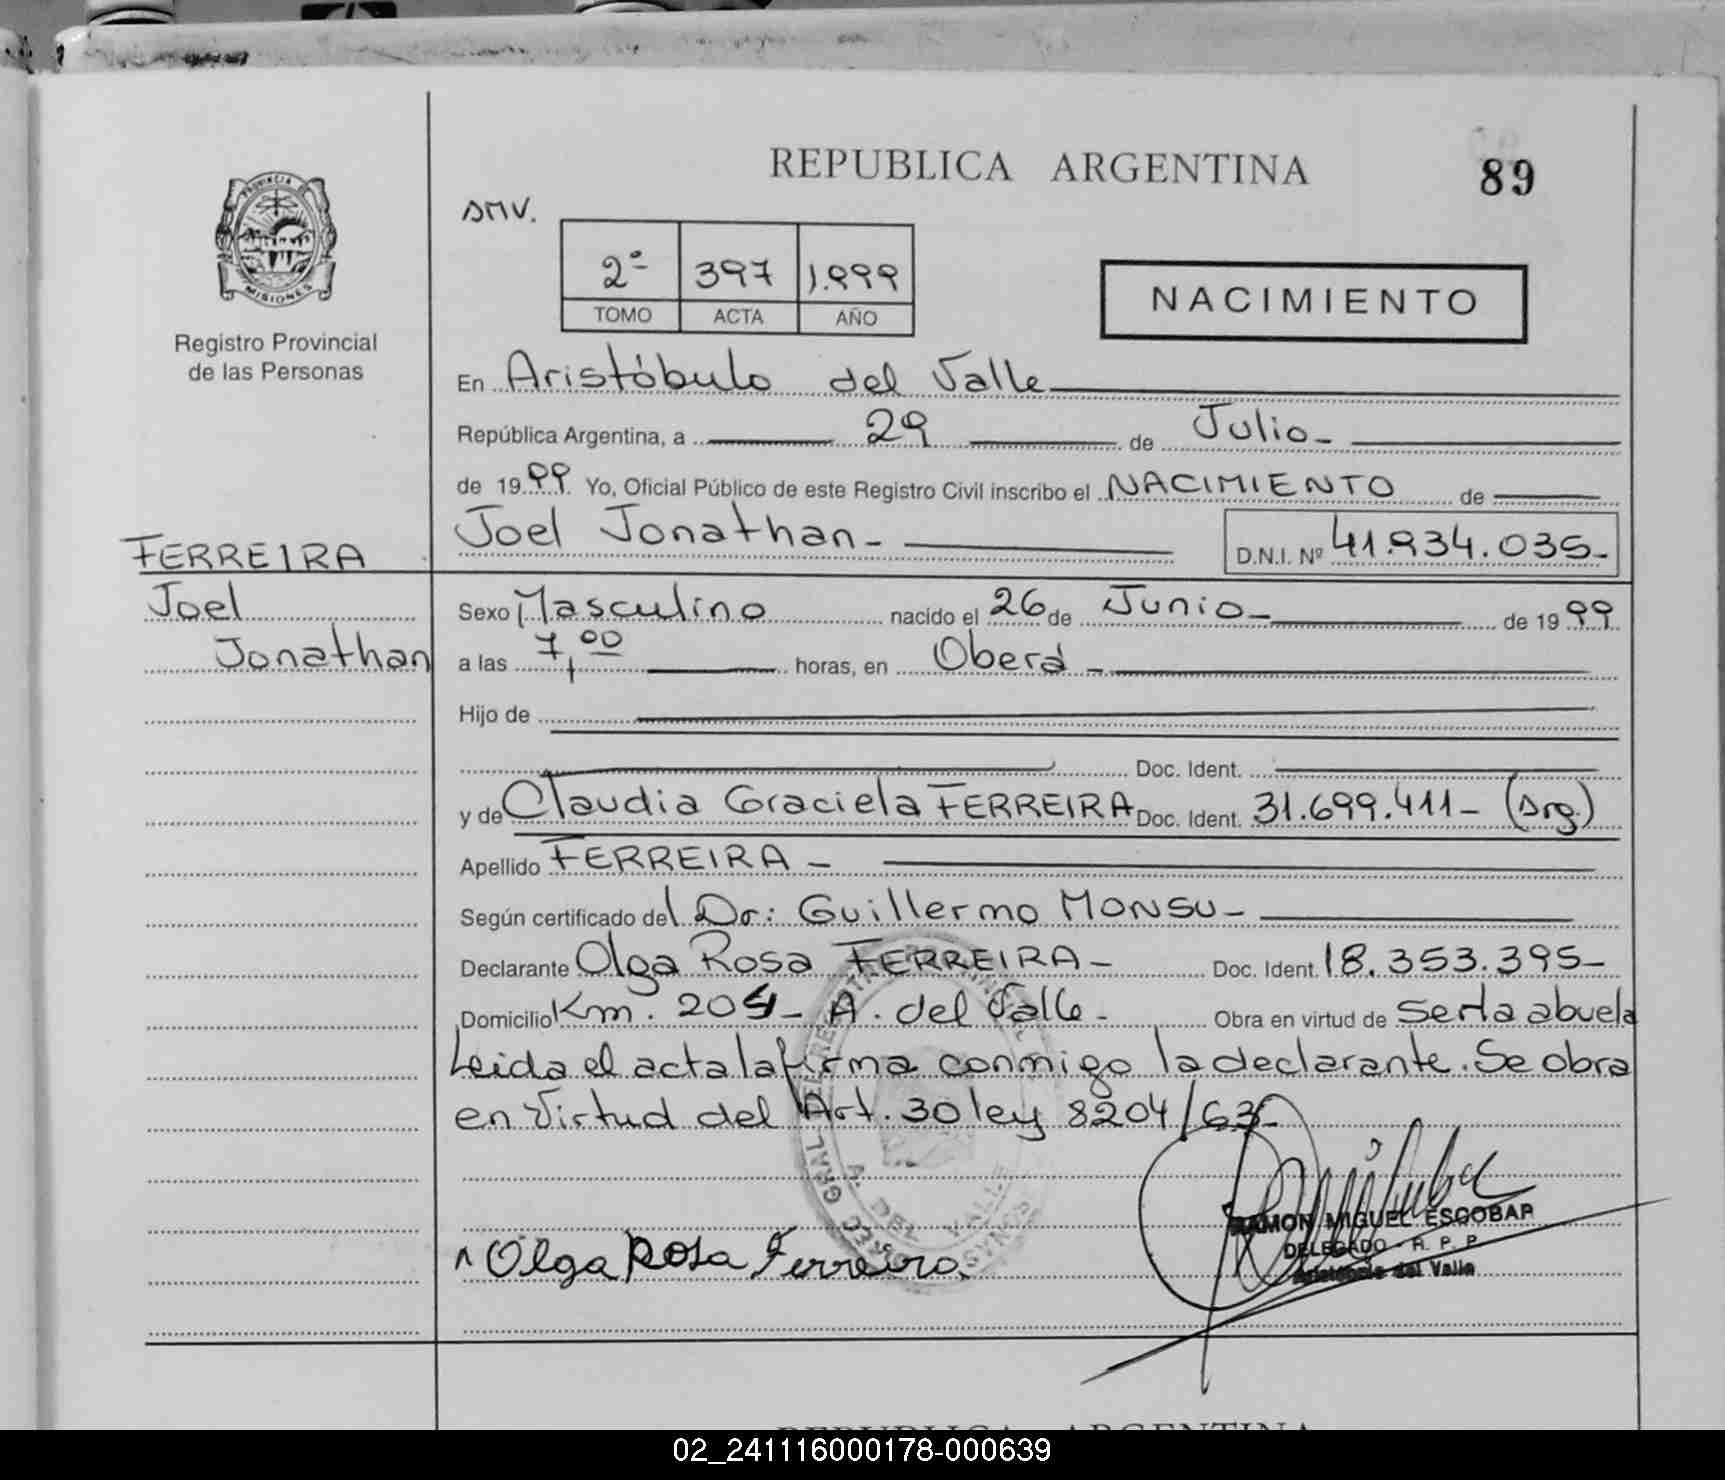 REPUBLICA ARGENTINA
89
PROVINCIA DE
MISIONES
Registro Provincial
de las Personas
2º 397 1.999
TOMO ACTA AÑO
NACIMIENTO
En Aristóbulo del Valle
República Argentina, a 29 de Julio
de 1999 Yo, Oficial Público de este Registro Civil inscribo el NACIMIENTO de
Joel Jonathan- D.N.I. Nº 41.934.035-
FERREIRA
Joel
Jonathan
Sexo Masculino nacido el 26 de Junio- de 1999
a las 7,00 horas, en Oberá-
Hijo de
Doc. Ident.
y de Claudia Graciela FERREIRA Doc. Ident. 31.699.411- (Arg.)
Apellido FERREIRA-
Según certificado del Dr: Guillermo MONSU-
Declarante Olga Rosa FERREIRA- Doc. Ident. 18.353.395-
Domicilio Km. 204- A. del Valle- Obra en virtud de ser la abuela
Leida el acta la firma conmigo la declarante. Se obra
en Virtud del Art. 30 ley 8204/63-
A. DEL VALLE
Olga Rosa Ferreira
RAMON MIGUEL ESCOBAR
DELEGADO - R. P. P.
Aristóbulo del Valle
REPUBLICA ARGENTINA
02_241116000178-000639